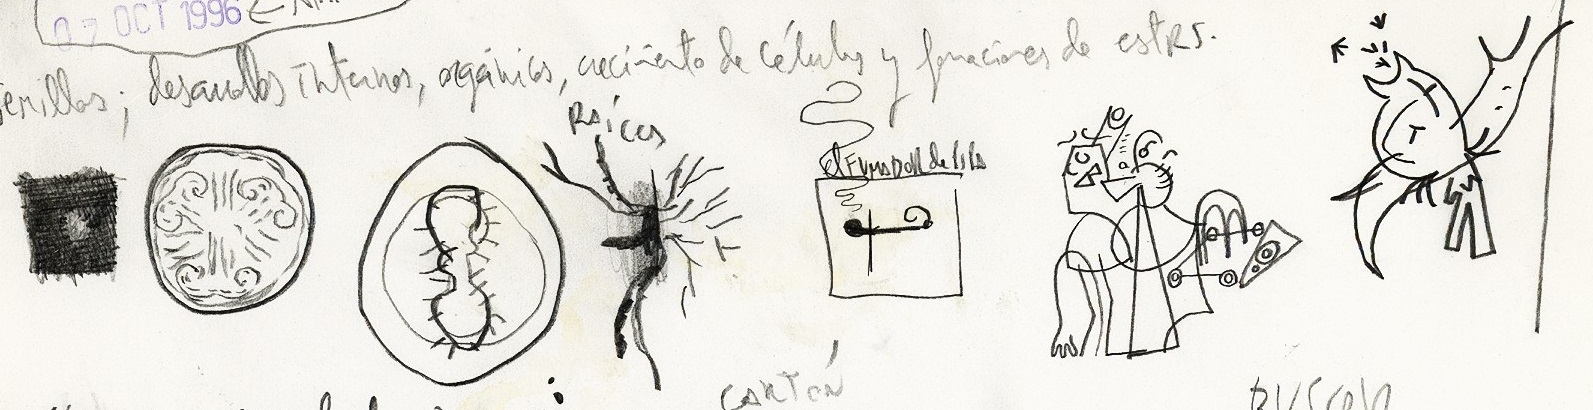 07 OCT 1996
semillas; desarrollos internos, orgánicos, crecimiento de células y funciones de estas.
RAÍCES
el FUMADOR de PIPA
CARTÓN